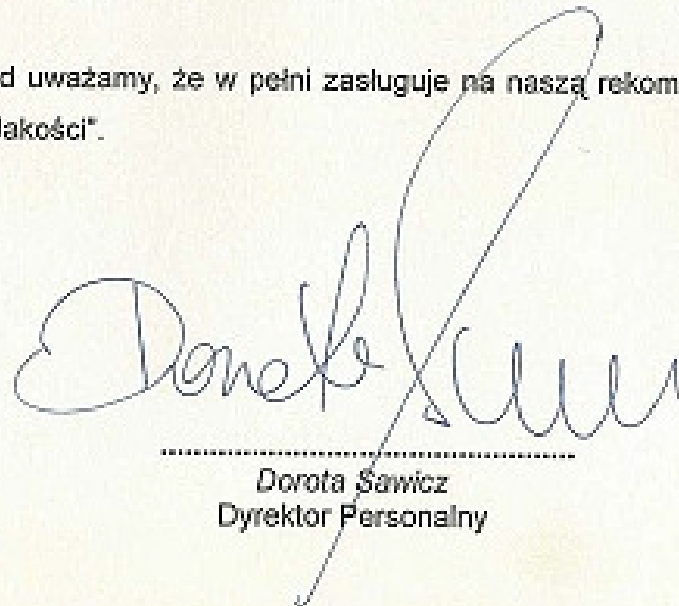 d uważamy, że w pełni zasługuje na naszą rekom
Jakości".
Dorota
Dorota Sawicz
Dyrektor Personalny